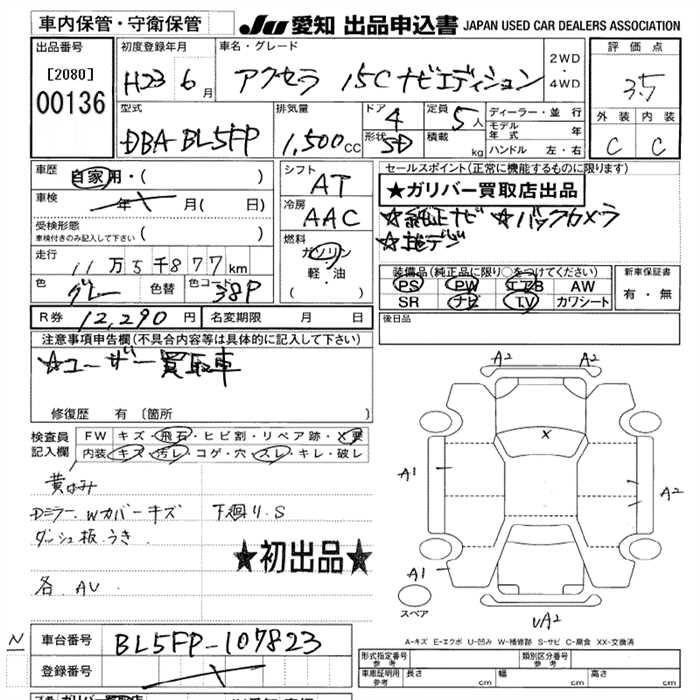 車内保管・守衛保管
JU 愛知 出品申込書 JAPAN USED CAR DEALERS ASSOCIATION
出品番号
[2080]
00136
初度登録年月
H23 6月
車名・グレード
アクセラ 15C ナビエディション
2WD
・
4WD
評価点
3.5
外装 内装
C C
型式
DBA BL5FP
排気量
1,500cc
ドア 4
形状 5D
定員 5人
積載 kg
ディーラー・並行
モデル年式 年
ハンドル 左・右
車歴 自家用・( )
車検 年 月( 日)
受検形態
車検付きのみ記入して下さい ( )
走行
11万5千877km
色 グレー 色替 色コード 38P
シフト
AT
冷房
AAC
燃料
ガソリン
軽・油
( )
セールスポイント(正常に機能するものに限ります)
★ガリバー買取店出品
☆純正ナビ ☆バックカメラ
☆地デジ
装備品(純正品に限り〇をつけてください)
PS PW エアB AW
SR ナビ TV カワシート
新車保証書
有・無
R券 12,290円 名変期限 月 日
後日品
注意事項申告欄(不具合内容等は具体的に記入して下さい)
☆ユーザー買取車
修復歴 有 〔箇所
検査員記入欄
FW キズ・飛石・ヒビ割・リペア跡・X要
内装 キズ・汚レ・コゲ・穴・スレ・キレ・破レ
黄ばみ
Dミラー.Wカバーキズ 下廻り.S
ダッシュ板.うき
各.AU
★初出品★
A2 A2
X
A1
A2
A1
UA2
スペア
A-キズ E-エクボ U-凹み W-補修跡 S-サビ C-腐食 XX-交換済
N
車台番号 BL5FP-107823
登録番号
形式指定番号
参考
類別区分番号
参考
車庫証明用
参考
長さ cm 幅 cm 高さ cm